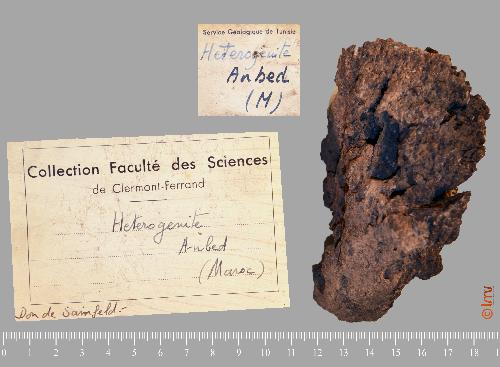 Service Géologique de Tunisie
Heterogenite
Anbed
(M)
Collection Faculté des Sciences
de Clermont-Ferrand
Heterogenite
Anbed
(Maroc)
Don de
©lmv
0 1 2 3 4 5 6 7 8 9 10 11 12 13 14 15 16 17 18